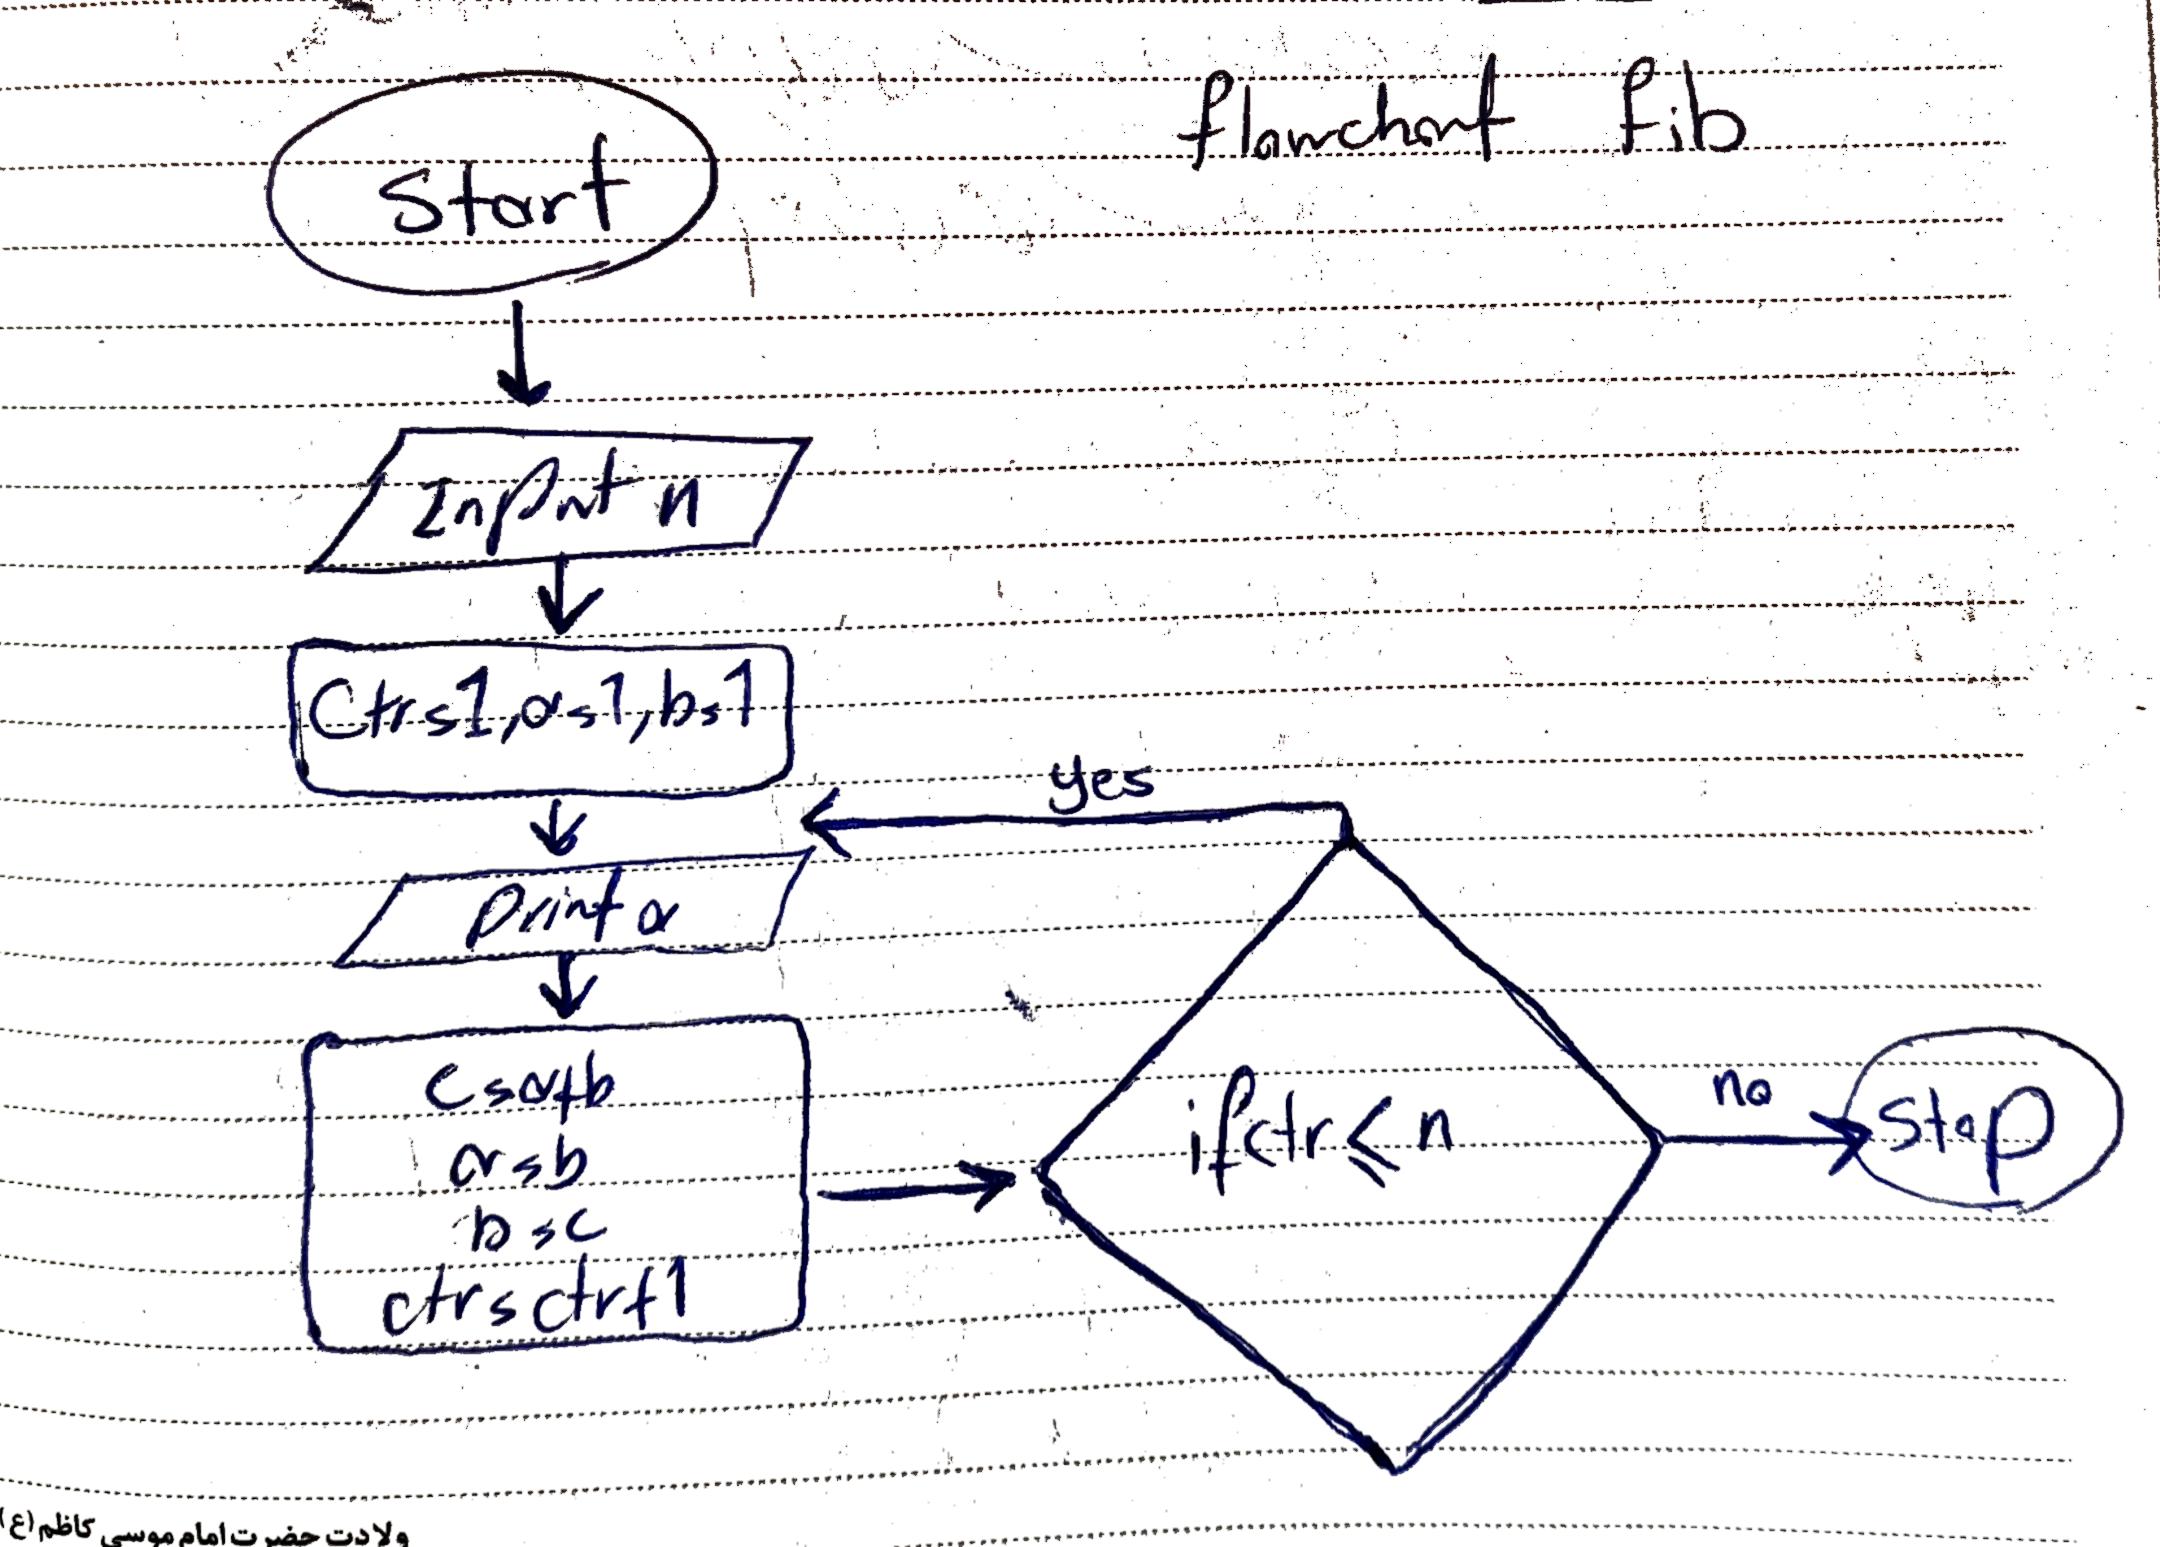 flowchart fib
Start
Input n
Ctr=1, a=1, b=1
yes
print a
c=a+b
a=b
b=c
ctr=ctr+1
if ctr ≤ n
no
Stop
ولادت حضرت امام موسی کاظم (ع)